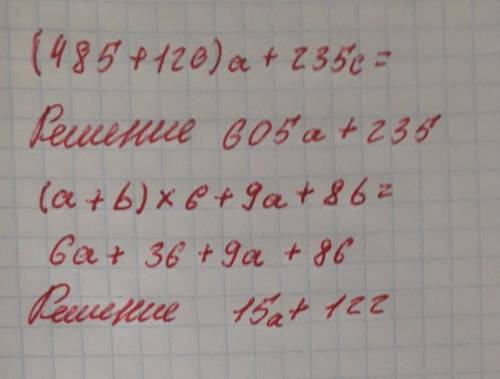 (485+120)a+235c=
Решение 605a+235
(a+6)×6+9a+86=
6a+36+9a+86
Решение 15a+122